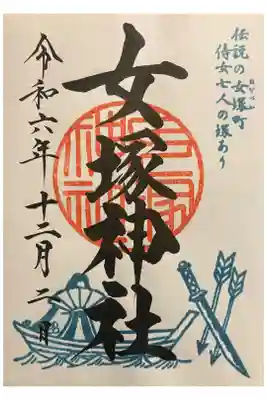 伝説の女塚町
侍女七人の塚あり
女塚神社
令和六年十二月二日